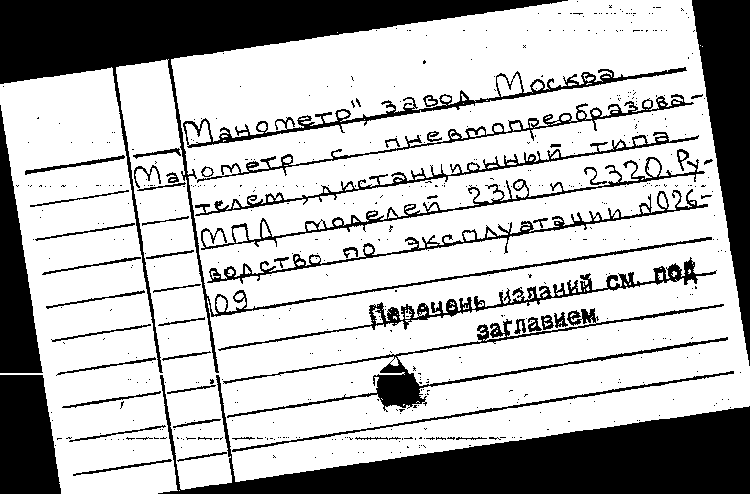 Манометр", завод. Москва.
Манометр с пневтопреобразова-
телем, дистанционный типа
МПД моделей 2319 и 2320. Ру-
водство по эксплуатации №026-
109
Перечень изданий см. под
заглавием